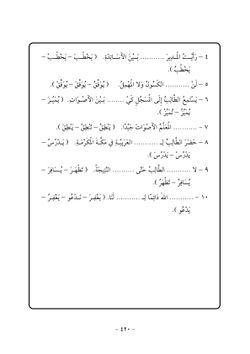 ٤ – رَأَيْتُ الْمُدِيرَ ............ بَيْنَ الأَسَاتِذَةِ. ( يَخْطُبَ – يَخْطُبْ –
يَخْطُبُ ).
٥ – لَنْ ............ الْكَسُولُ وَلاَ الْمُهْمِلُ. ( يُوَفَّقُ – يُوَفَّقْ – يُوَفَّقَ ).
٦ – يَسْتَمِعُ الطَّالِبُ إِلَى الْمُسَجِّلِ كَيْ ........ بَيْنَ الأَصْوَاتِ. ( يُمَيِّزَ –
يُمَيِّزُ – تُمَيِّزُ ).
٧ – ............ الْمُعَلِّمُ الأَصْوَاتَ جَيِّدًا. ( يَنْطِقُ – تَنْطِقُ – يَنْطِقَ ).
٨ – حَضَرَ الطَّالِبُ لِـ ............ الْعَرَبِيَّةَ فِي مَكَّةَ الْمُكَرَّمَةِ. ( يَدْرُسُ –
يَدْرُسَ – يَدْرُسْ ).
٩ – لا ............ الطَّالِبُ حَتَّى .......... النَّتِيجَةُ. ( تَظْهَرَ – يُسَافِرُ –
يُسَافِرْ – تَظْهَرُ ).
١٠ – ............ اللهَ دَائِمًا لِـ ............ لَنَا. ( يَغْفِرَ – نَدْعُو – يَغْفِرُ –
يَدْعُو ).
- ٤٢٠ -